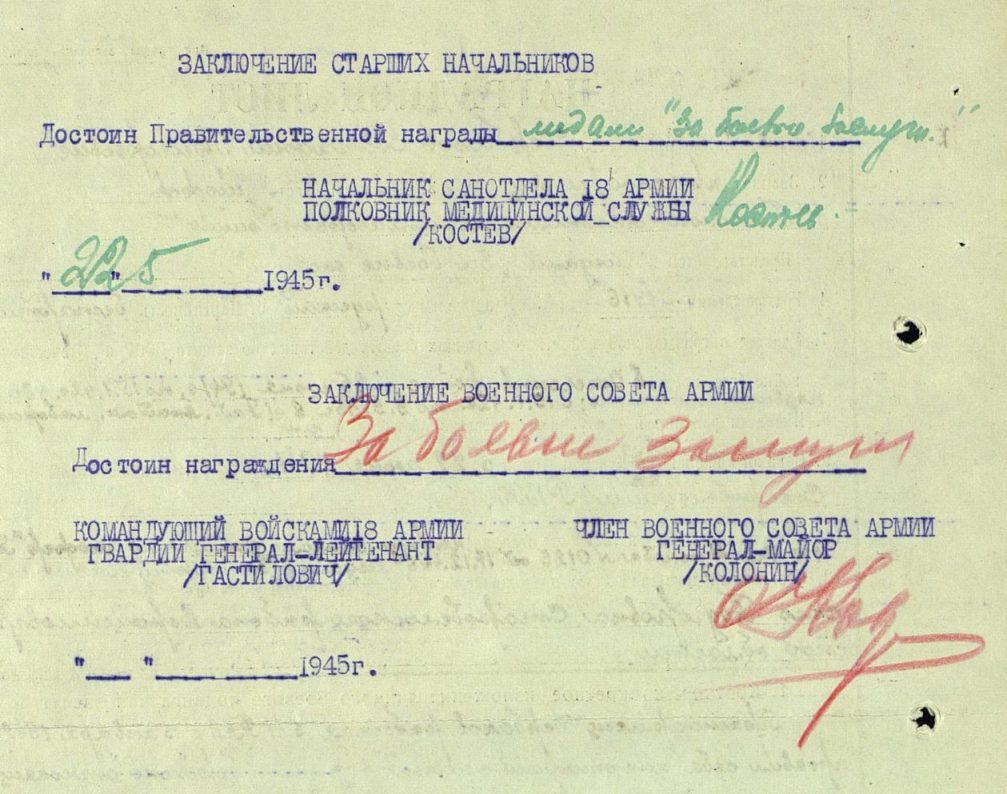 ЗАКЛЮЧЕНИЕ СТАРШИХ НАЧАЛЬНИКОВ
Достоин Правительственной награды медали "За боевые заслуги."
НАЧАЛЬНИК САНОТДЕЛА 18 АРМИИ
ПОЛКОВНИК МЕДИЦИНСКОЙ СЛУЖБЫ
/КОСТЕВ/
"22" 5 1945г.
ЗАКЛЮЧЕНИЕ ВОЕННОГО СОВЕТА АРМИИ
Достоин награждения За боевые заслуги
КОМАНДУЮЩИЙ ВОЙСКАМИ 18 АРМИИ
ГВАРДИИ ГЕНЕРАЛ-ЛЕЙТЕНАНТ
/ГАСТИЛОВИЧ/
ЧЛЕН ВОЕННОГО СОВЕТА АРМИИ
ГЕНЕРАЛ-МАЙОР
/КОЛОНИН/
"__" ____ 1945г.